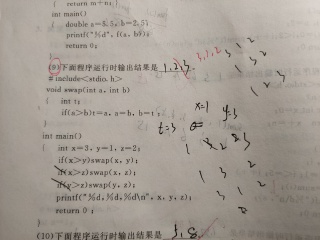 { return m+n; }
int main()
{ double a=3.5, b=2.5;
printf("%d", f(a, b));
return 0;
(9)下面程序运行时输出结果是 1,2,3. 3,1,2 3 1 2
#include<stdio.h> 1 3 2
void swap(int a, int b) 1 2 3
{ int t;
if(a>b)t=a,a=b,b=t;
x=1 y=3
t=3
int main()
{ int x=3,y=1,z=2;
if(x>y)swap(x, y);
if(x>z)swap(x, z); 1 3 2
if(y>z)swap(y, z); 3 1 2
printf("%d,%d,%d\n", x, y, z);
return 0;
(10)下面程序运行时输出结果是 3,8.